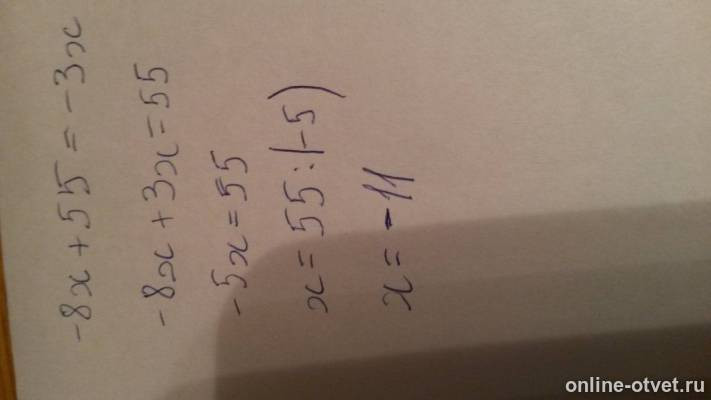 -8x + 55 = -3x
-8x + 3x = 55
-5x = 55
x = 55 : (-5)
x = -11
online-otvet.ru